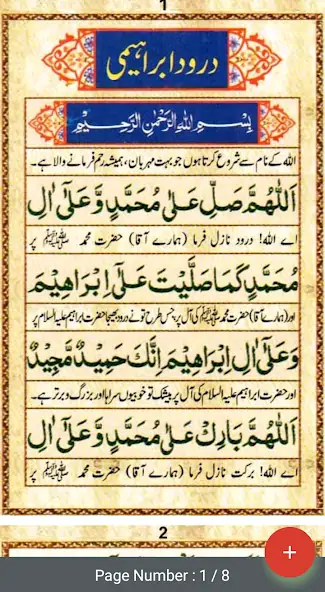 1
درود ابراہیمی
بِسْمِ اللهِ الرَّحْمٰنِ الرَّحِيْمِ
اللہ کے نام سے شروع کرتا ہوں جو بہت مہربان، ہمیشہ رحم فرمانے والا ہے۔
اَللّٰهُمَّ صَلِّ عَلٰى مُحَمَّدٍ وَّعَلٰٓى اٰلِ
اے اللہ! درود نازل فرما (ہمارے آقا) حضرت محمد ﷺ پر
مُحَمَّدٍ كَمَا صَلَّيْتَ عَلٰٓى اِبْرَاهِيْمَ
اور (ہمارے آقا) حضرت محمد ﷺ کی آل پر جس طرح تو نے درود بھیجا حضرت ابراہیم علیہ السلام پر
وَعَلٰٓى اٰلِ اِبْرَاهِيْمَ اِنَّكَ حَمِيْدٌ مَّجِيْدٌ
اور حضرت ابراہیم علیہ السلام کی آل پر بیشک تو خوبیوں سراہا اور بزرگ و برتر ہے۔
اَللّٰهُمَّ بَارِكْ عَلٰى مُحَمَّدٍ وَّعَلٰٓى اٰلِ
اے اللہ! برکت نازل فرما (ہمارے آقا) حضرت محمد ﷺ پر
2
Page Number : 1 / 8
+